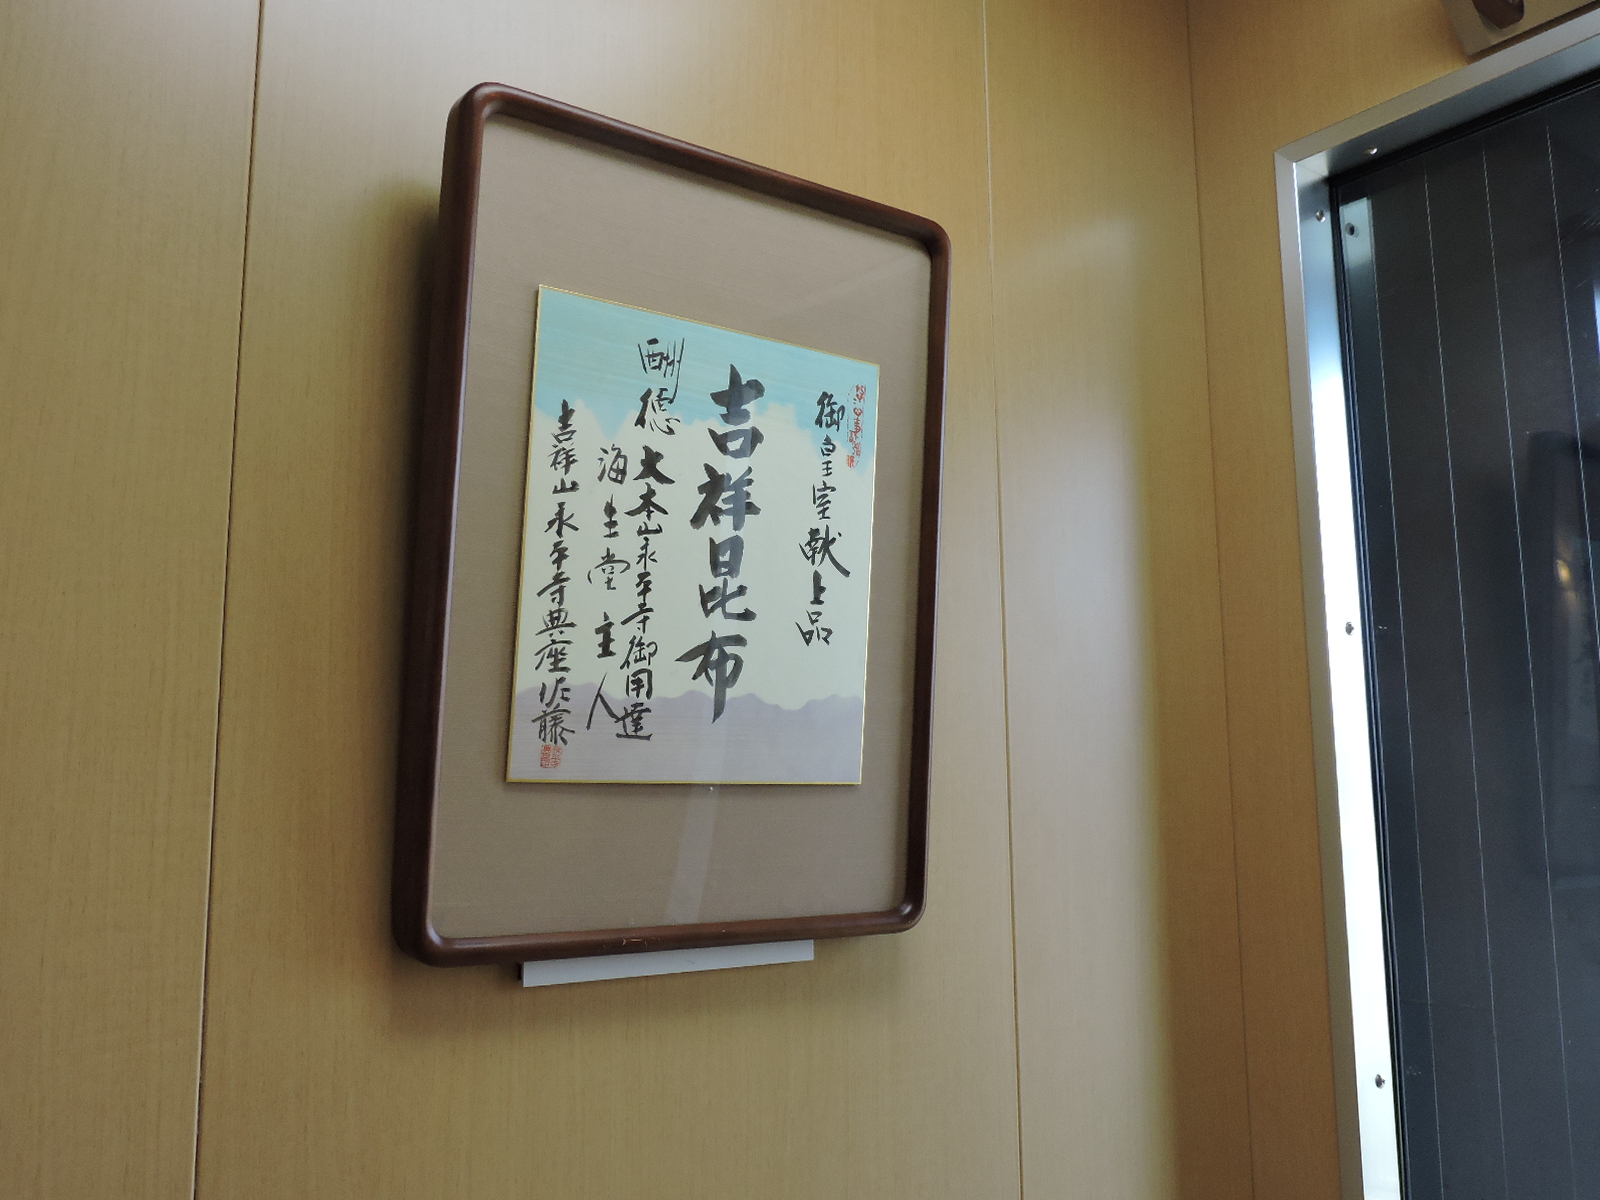 御皇室献上品
吉祥昆布
酬徳 大本山永平寺御用達
海生堂主人
吉祥山永平寺典座佐藤